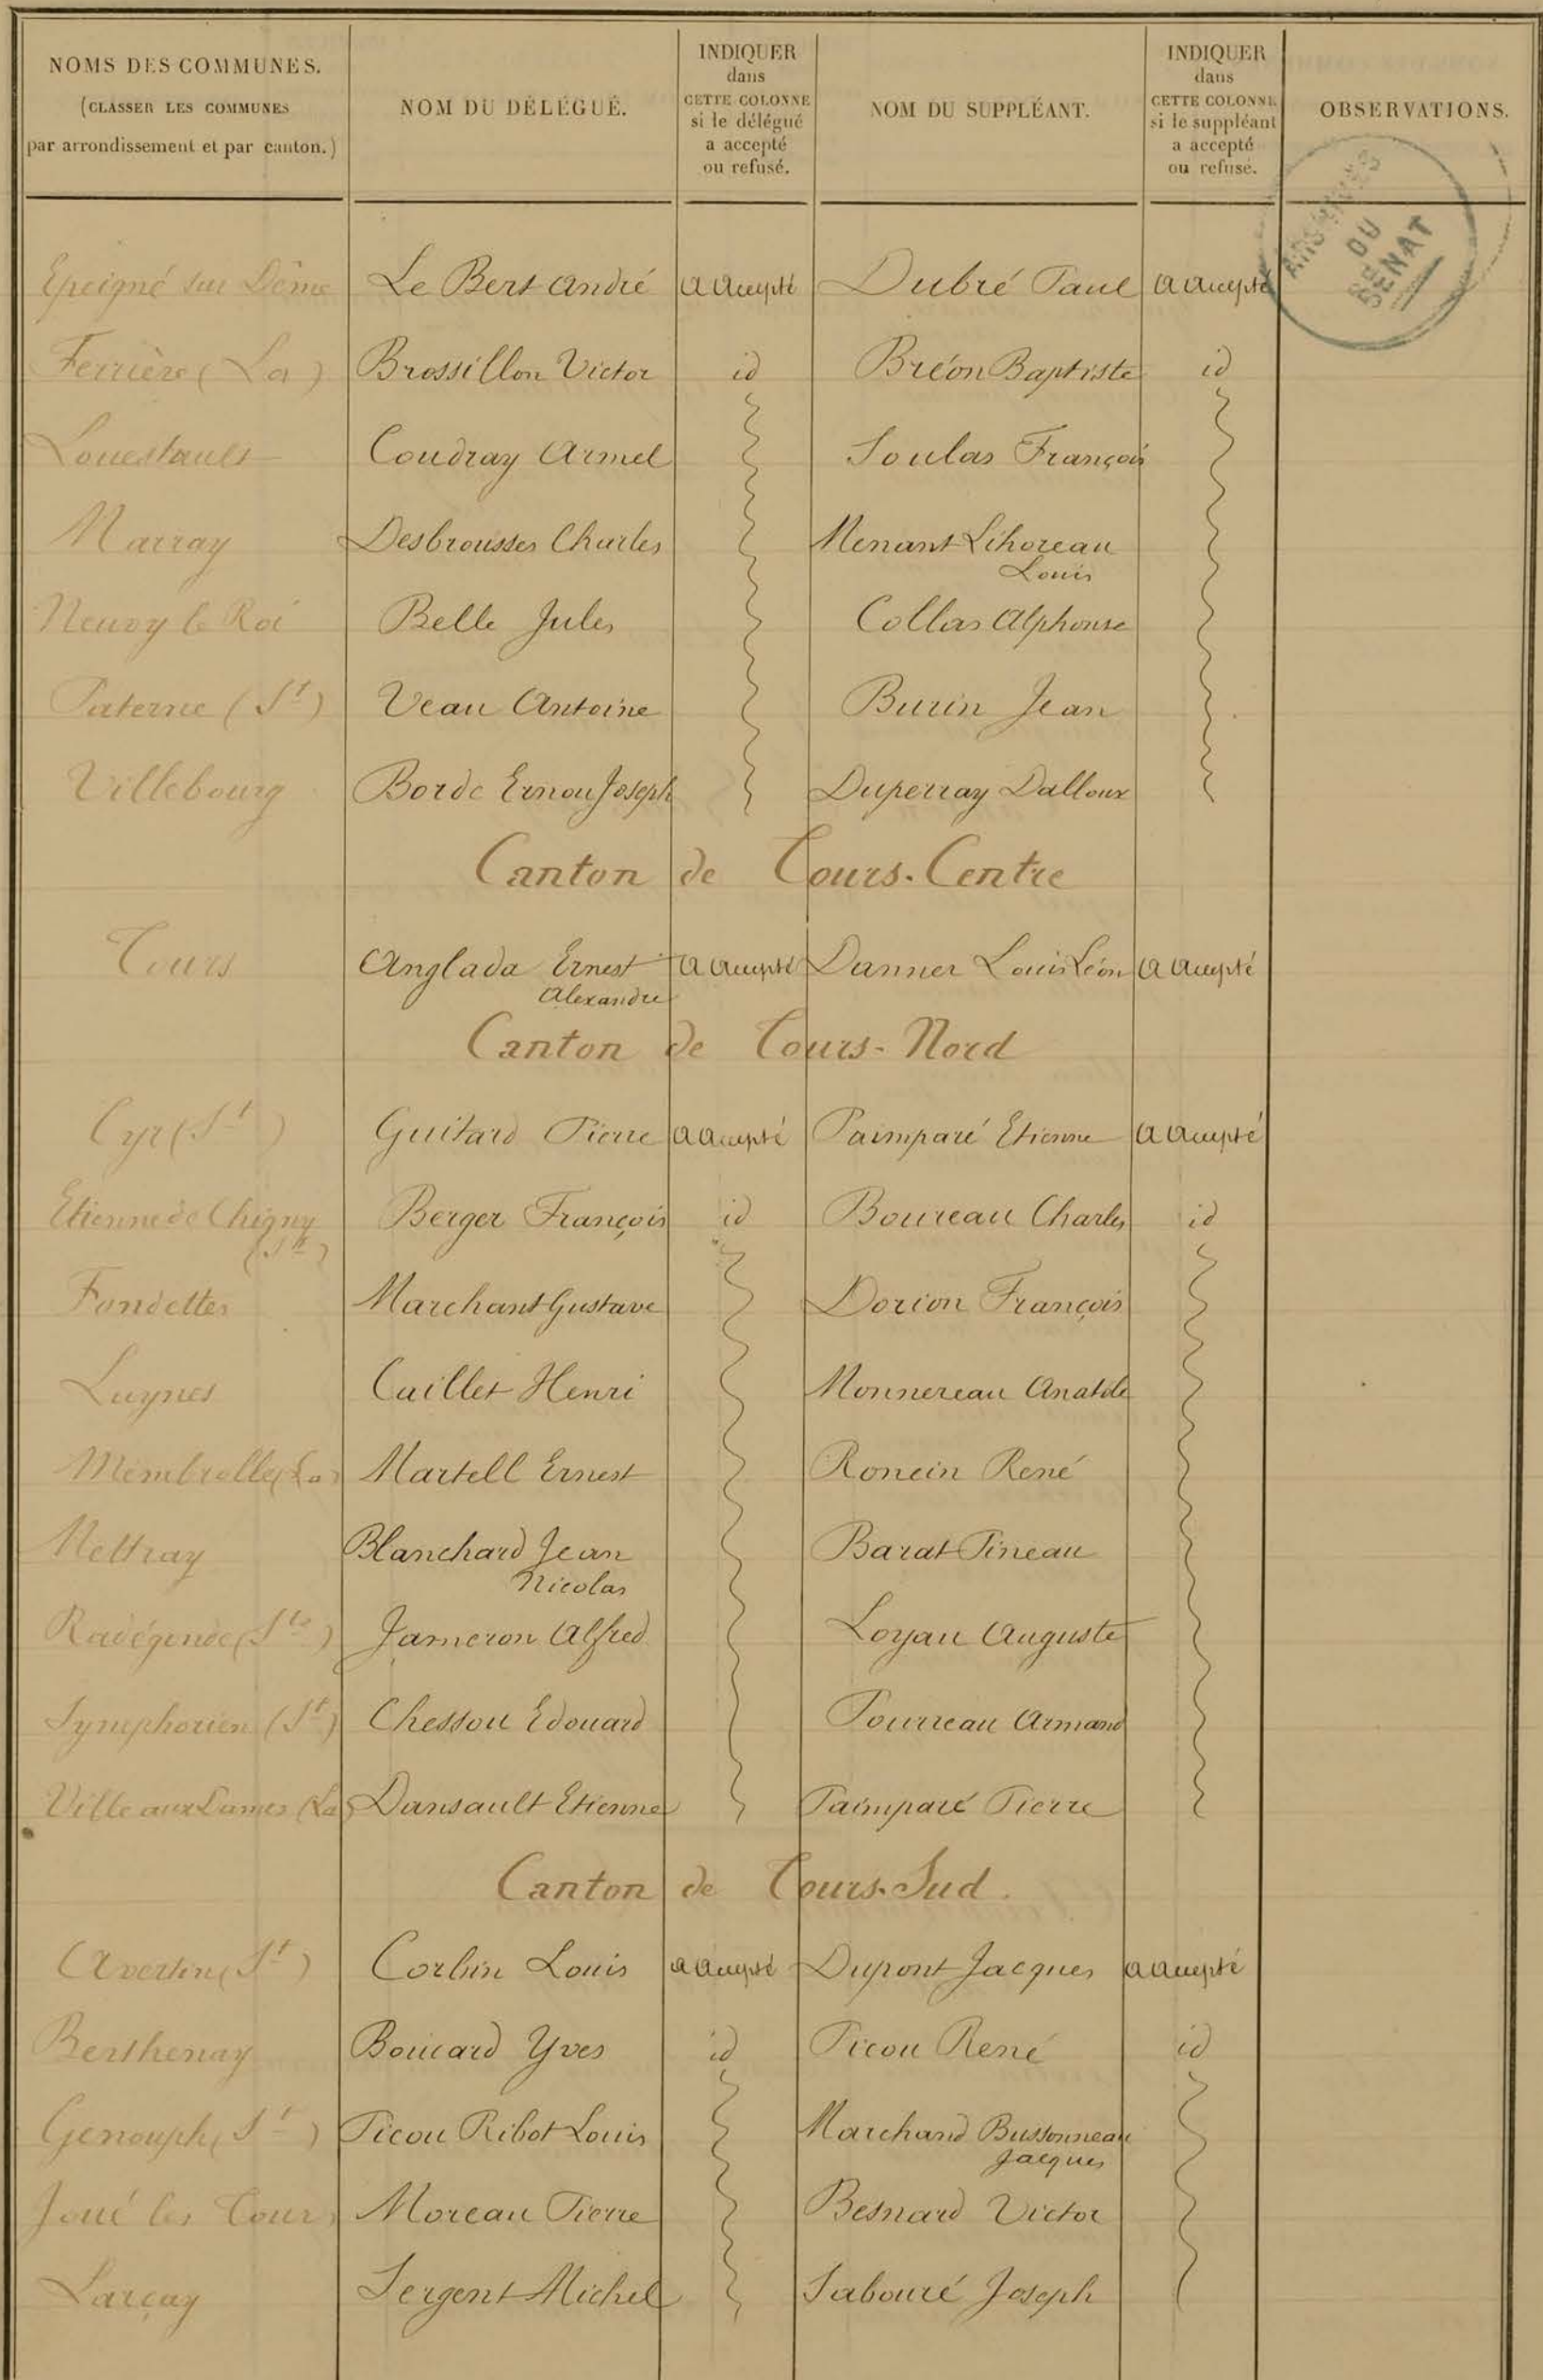 NOMS DES COMMUNES.
(CLASSER LES COMMUNES
par arrondissement et par canton.)
NOM DU DÉLÉGUÉ.
INDIQUER
dans
CETTE COLONNE
si le délégué
a accepté
ou refusé.
NOM DU SUPPLÉANT.
INDIQUER
dans
CETTE COLONNE
si le suppléant
a accepté
ou refusé.
OBSERVATIONS.
ARCHIVES
DU
SÉNAT
Epeigné sur Dême Le Bert André a accepté Dubré Paul a accepté
Ferrière (La) Brossillon Victor id Bréon Baptiste id
Louestault Coudray Armel Soulas François
Marray Desbrousses Charles Menant Lihoreau
Louis
Neuvy le Roi Belle Jules Collas Alphonse
Paterne (St) Veau Antoine Burin Jean
Villebourg Borde Ernou Joseph Duperray Dalloux
Canton de Tours-Centre
Tours Anglada Ernest a accepté Danner Louis Léon a accepté
Alexandre
Canton de Tours-Nord
Cyr (St) Guitard Pierre a accepté Paimparé Etienne a accepté
Etienne de Chigny Berger François id Boureau Charles id
(St)
Fondettes Marchant Gustave Dorion François
Luynes Caillet Henri Monnereau Anatole
Membrolle (La) Martell Ernest Roncin René
Mettray Blanchard Jean Barat Pineau
Nicolas
Radégonde (Ste) Jameron Alfred Loyau Auguste
Symphorien (St) Chessou Edouard Pourreau Armand
Ville aux Dames (La) Dansault Etienne Paimparé Pierre
Canton de Tours-Sud.
Avertin (St) Corbin Louis a accepté Dupont Jacques a accepté
Berthenay Boucard Yves id Picou René id
Genouph (St) Picou Ribot Louis Marchand Bussonneau
Jacques
Joué les Tours Moreau Pierre Besnard Victor
Larçay Sergent Michel Sabouré Joseph